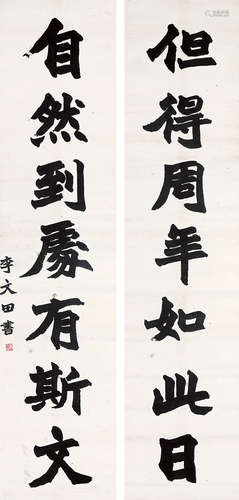 但得周年如此日
自然到處有斯文
李文田書